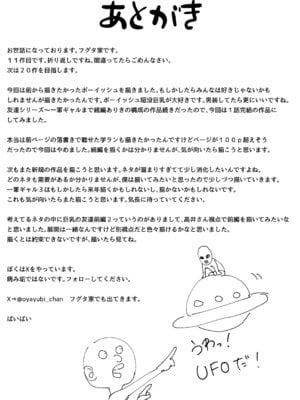 あとがき
お世話になっております。フグタ家です。
11作目です。折り返しですね。間違ってたらごめんなさい。
次は20作を目指します。
今回は前から描きたかったボーイッシュを描きました。もしかしたらみんなは好きじゃないかも
しれませんが描きたかったんです。ボーイッシュ隠没巨乳が大好きです。男装してたら更にいいですね。
友達シリーズ～一軍ギャルまで続編ありきの構成の作品続きだったので、今回は1話完結の作品に
してみました。
本当は前ページの落書きで載せた学ランも描きたかったんですけどページが100p超えそう
だったので今回はやめました。続編を描くかは分かりませんが、気が向いたら描こうと思います。
次もまた新規の作品を描こうと思います。ネタが溜まりすぎてて少し消化したいんですよね。
どのネタも需要があるか分かりませんが、僕は描いてみたいと思ったので少しづつ描いていきます。
一軍ギャル3はもしかしたら来年描くかもしれないし、描かないかもしれないです。
これも気が向いたらまた描こうと思います。気長に待っていてください。
考えてるネタの中に巨乳の友達前編2っていうのがありまして、高井さん視点で前編を描いてみたいな
と思いました。展開は一緒なんですけど別視点だと色々描けるかなと思いました。
描くとは約束できないですが、描いたら見てね。
ぼくはXをやっています。
病み垢ではないです。フォローしてください。
X→@oyayubi_chan フグタ家でも出てきます。
ばいばい
うわっ!
UFOだ!